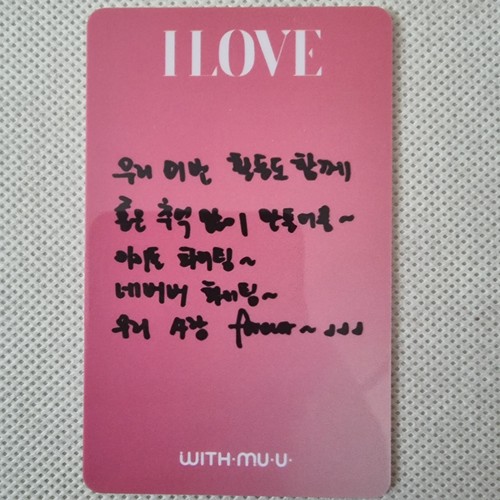 I LOVE
우리 이번 활동도 함께
좋은 추억 많이 만들어용~
아이들 화이팅~
네버버 화이팅~
우리 사랑 forever~ ♪♪♪
WITH·MU·U·